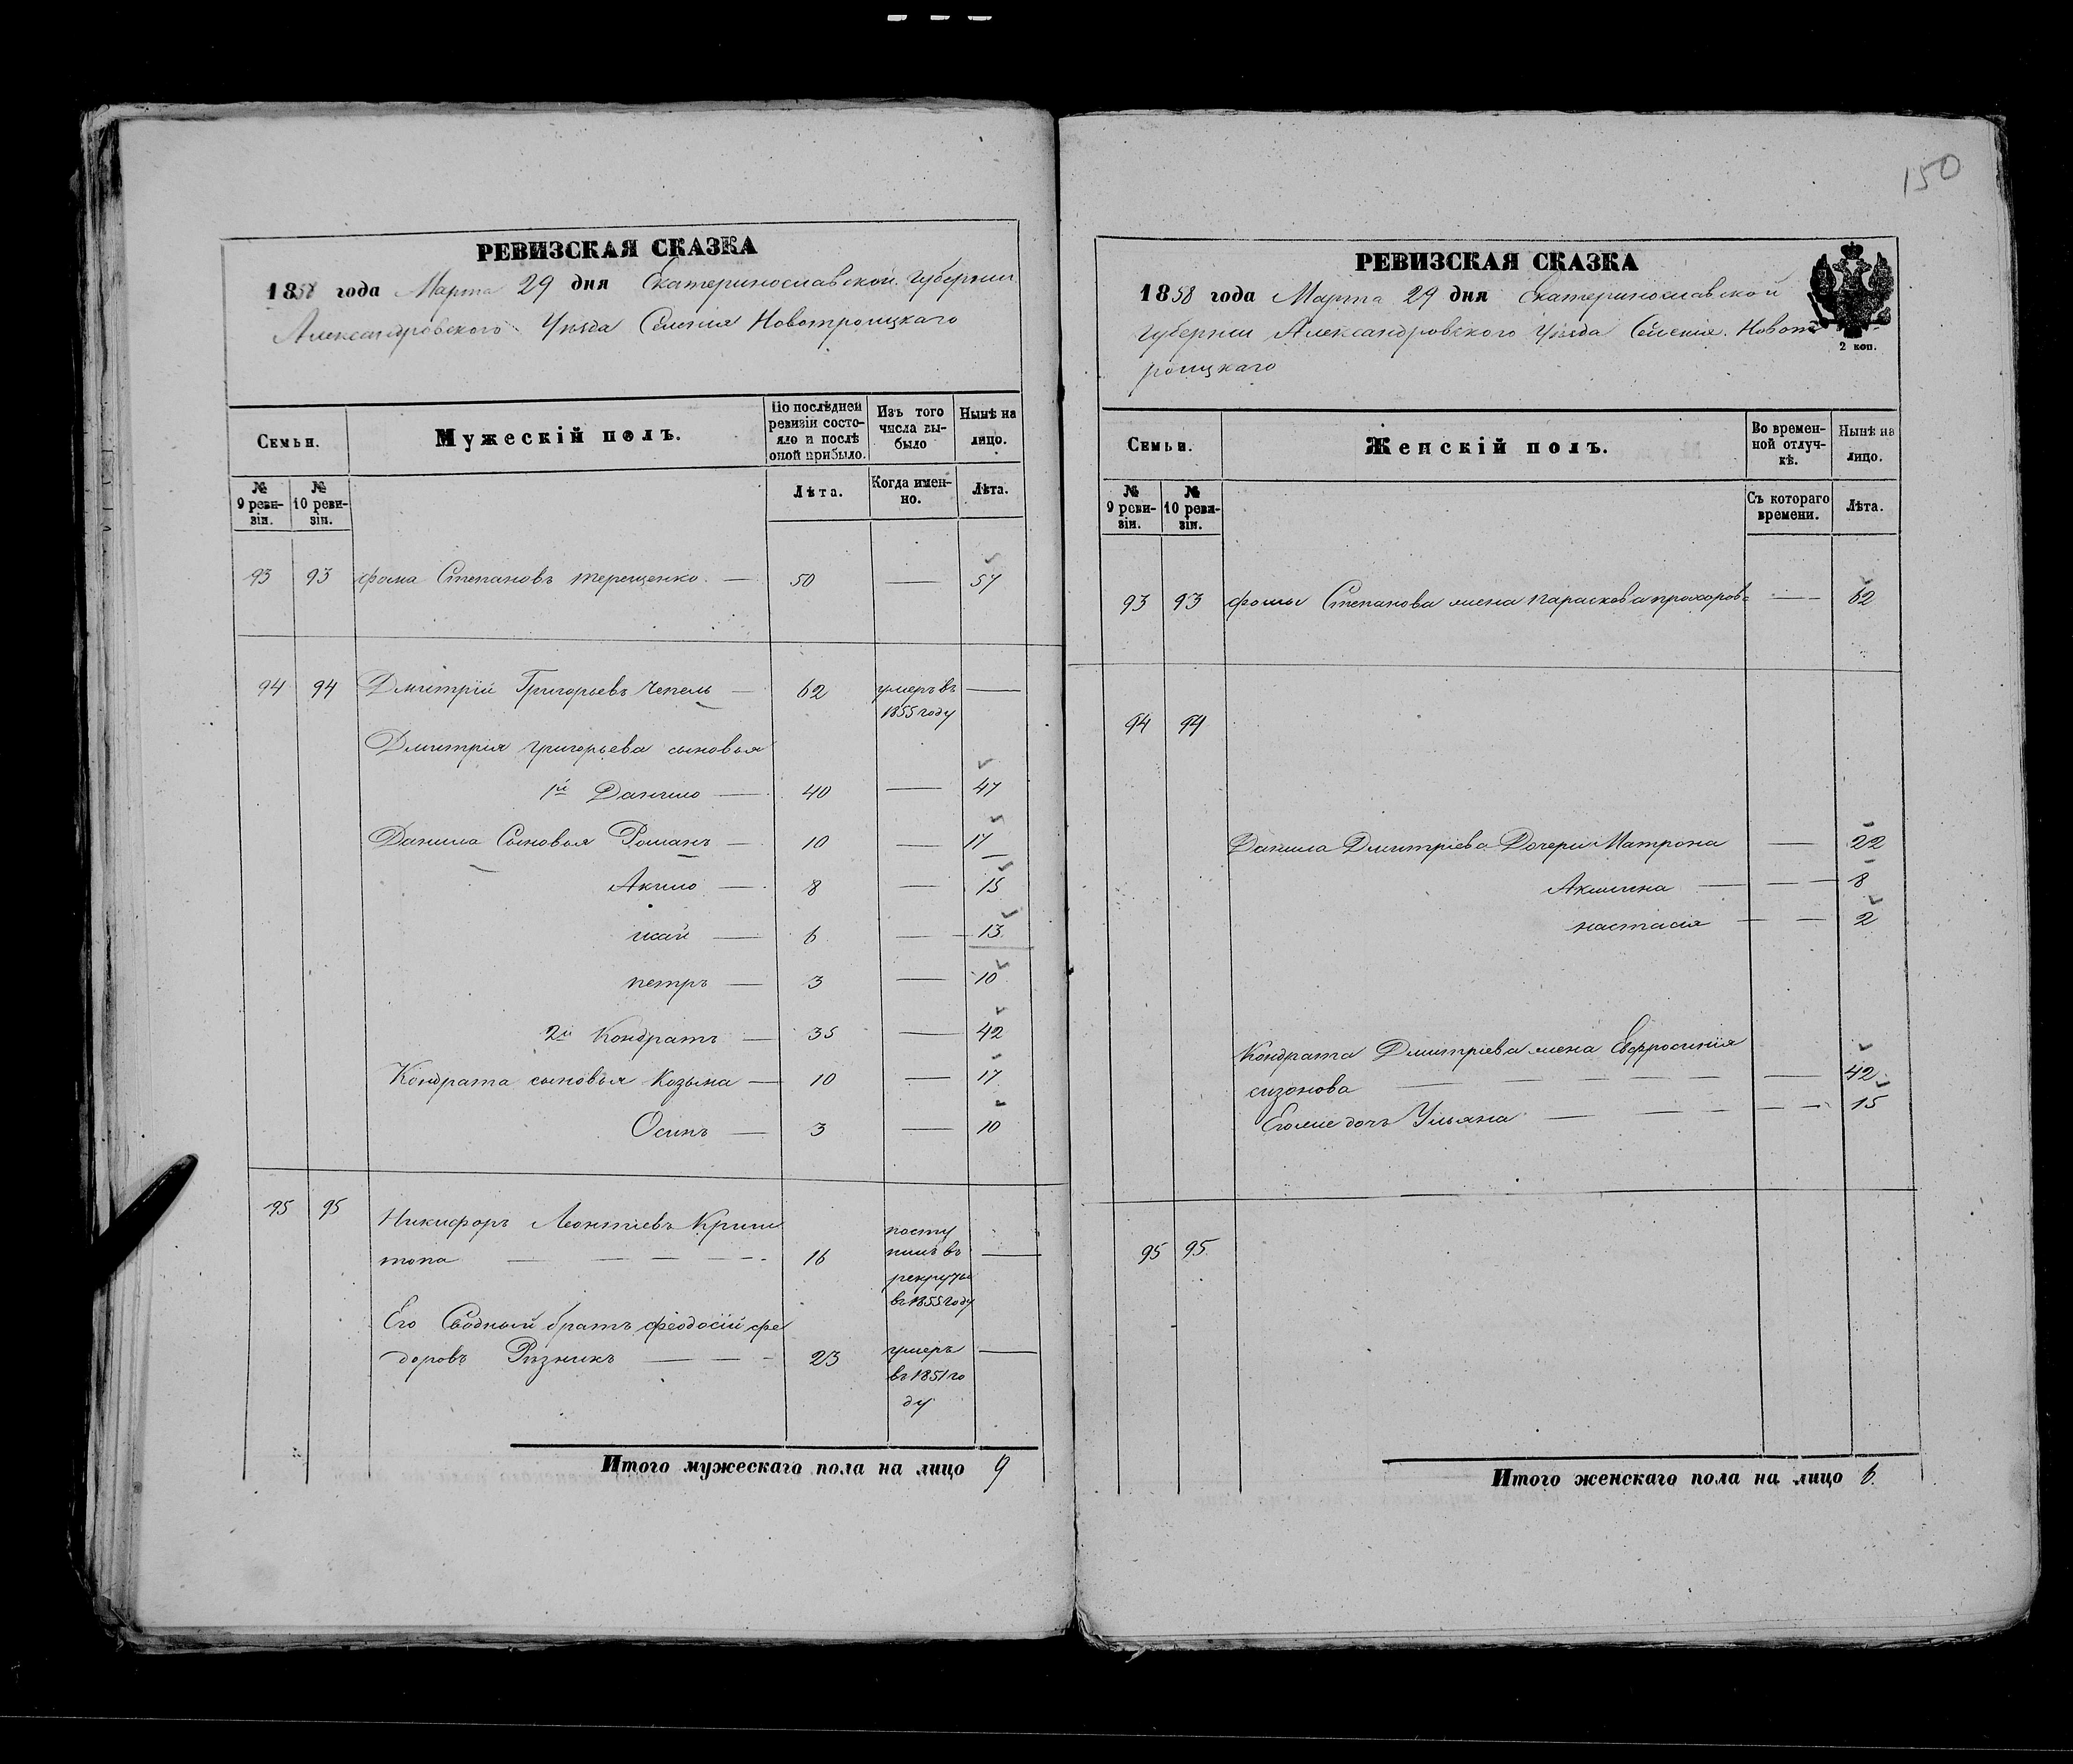 РЕВИЗСКАЯ СКАЗКА
1858 года Марта 29 дня Екатеринославской Губернии
Александровского Уѣзда Селения Новотроицкаго
Семьи.
Мужескій полъ.
По послѣдней ревизіи состояло и послѣ оной прибыло.
Изъ того числа выбыло
Нынѣ на лицо.
№ 9 ревизіи.
№ 10 ревизіи.
Лѣта.
Когда именно.
Лѣта.
93 93 Фома Степановъ Терещенко — 50 — 57
94 94 Дмитрій Григорьевъ Чепель — 62 умеръ въ —
1855 году
Дмитрія Григорьева сыновья
1й Данило — 40 — 47
Данила Сыновья Романъ — 10 — 17
Акило — 8 — 15
исай — 6 — 13
петръ — 3 — 10
2й Кондратъ — 35 — 42
Кондрата сыновья Козьма — 10 — 17
Осипъ — 3 — 10
95 95 Никифоръ Леонтіевъ Криш
топа — — — — 16 посту
пилъ въ —
рекруты
въ 1855 году
Его Сводный братъ феодосій фе
доровъ Рѣзникъ — — — 23 умеръ —
въ 1851 го
ду
Итого мужескаго пола на лицо 9
150
РЕВИЗСКАЯ СКАЗКА
1858 года Марта 29 дня Екатеринославской
Губернии Александровского Уѣзда Селения Новот
роицкаго
2 коп.
Семьи.
Женскій полъ.
Во временной отлучкѣ.
Нынѣ на лицо.
№ 9 ревизіи.
№ 10 ревизіи.
Съ котораго времени.
Лѣта.
93 93 фомы Степанова жена параскева прохорова — 62
94 94
Данила Дмитріева Дочери Матрона — 22
Акилина — — — 8
настасія — — 2
Кондрата Дмитріева жена Евфросинія
сизонова — — — — — — 42
Его же дочь Ульяна — — — — — 15
95 95
Итого женскаго пола на лицо 6.